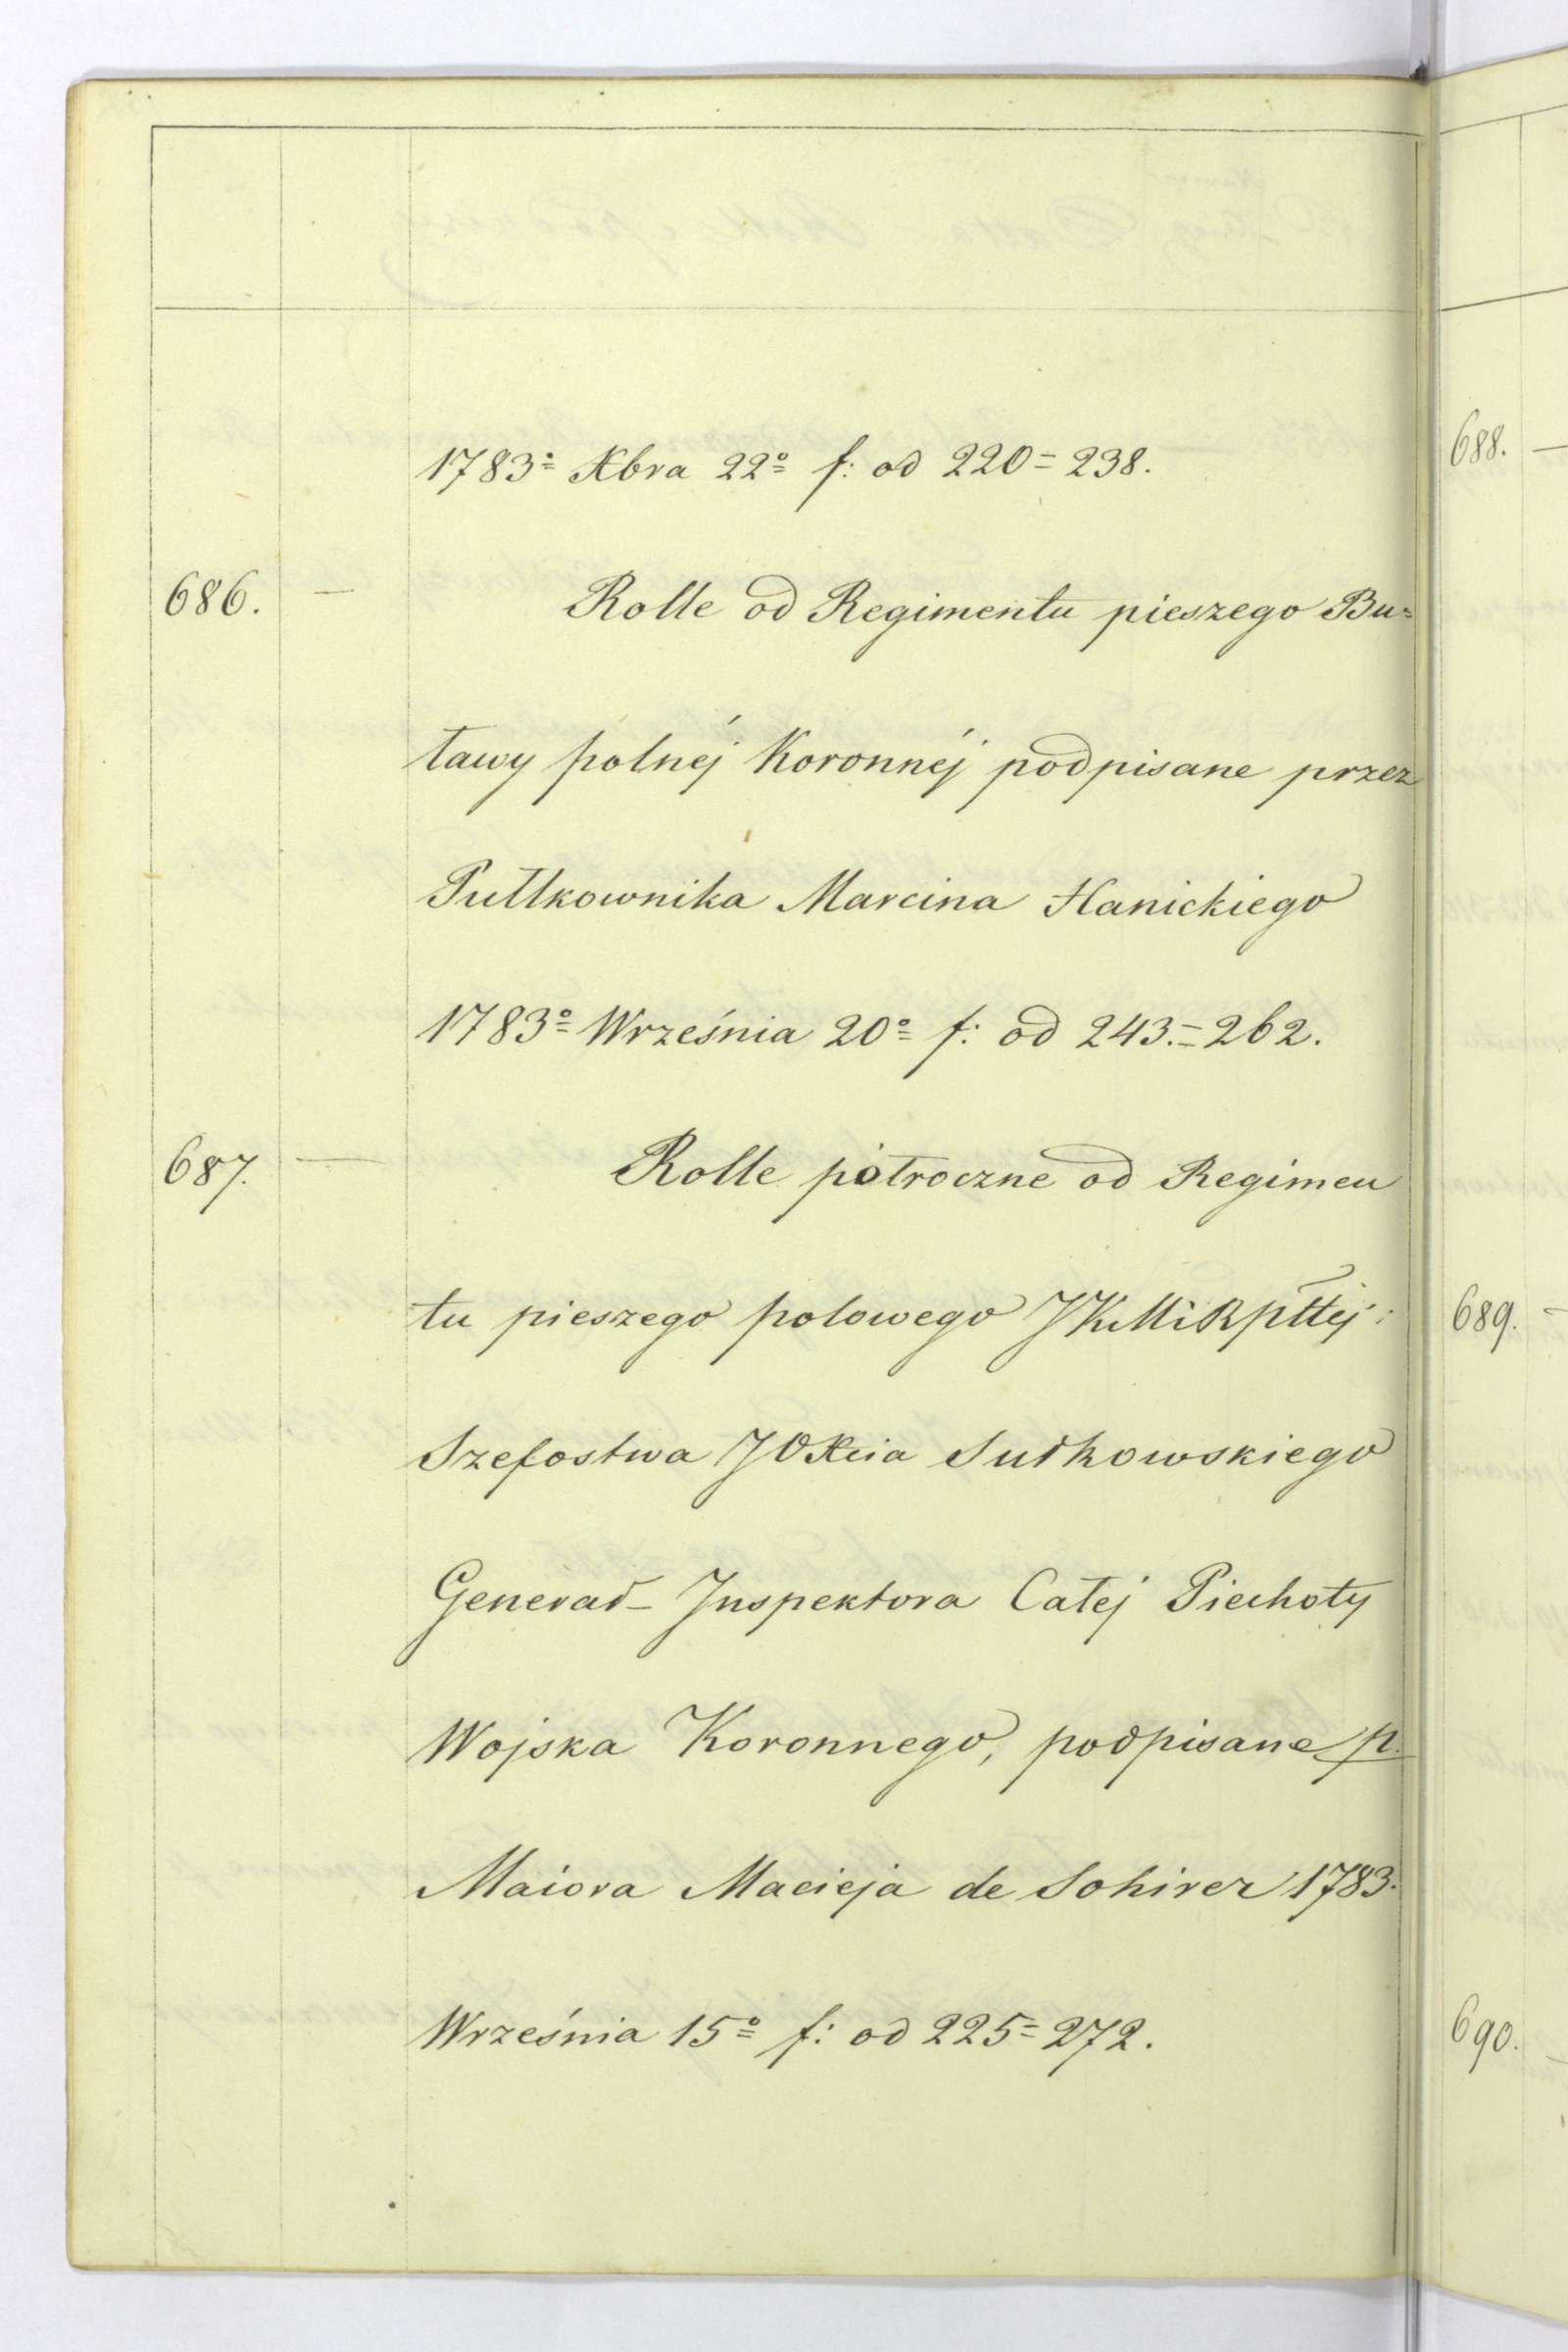 1783º Xbra 22º f: od 220=238.
686. — Rolle od Regimentu pieszego Bu=
ławy polnéj Koronnéj podpisane przez
Pułlkownika Marcina Hanickiego
1783º Września 20º f: od 243.=262.
687. — Rolle półroczne od Regimen
tu pieszego polowego JKMiRpłtej:
Szefostwa JOXcia Sułkowskiego
Generał- Inspektora Całej Piechoty
Wojska Koronnego, podpisane p.
Maiora Macieja de Sohirer 1783.
Września 15º f: od 225=272.
688. —
689. -
690. -